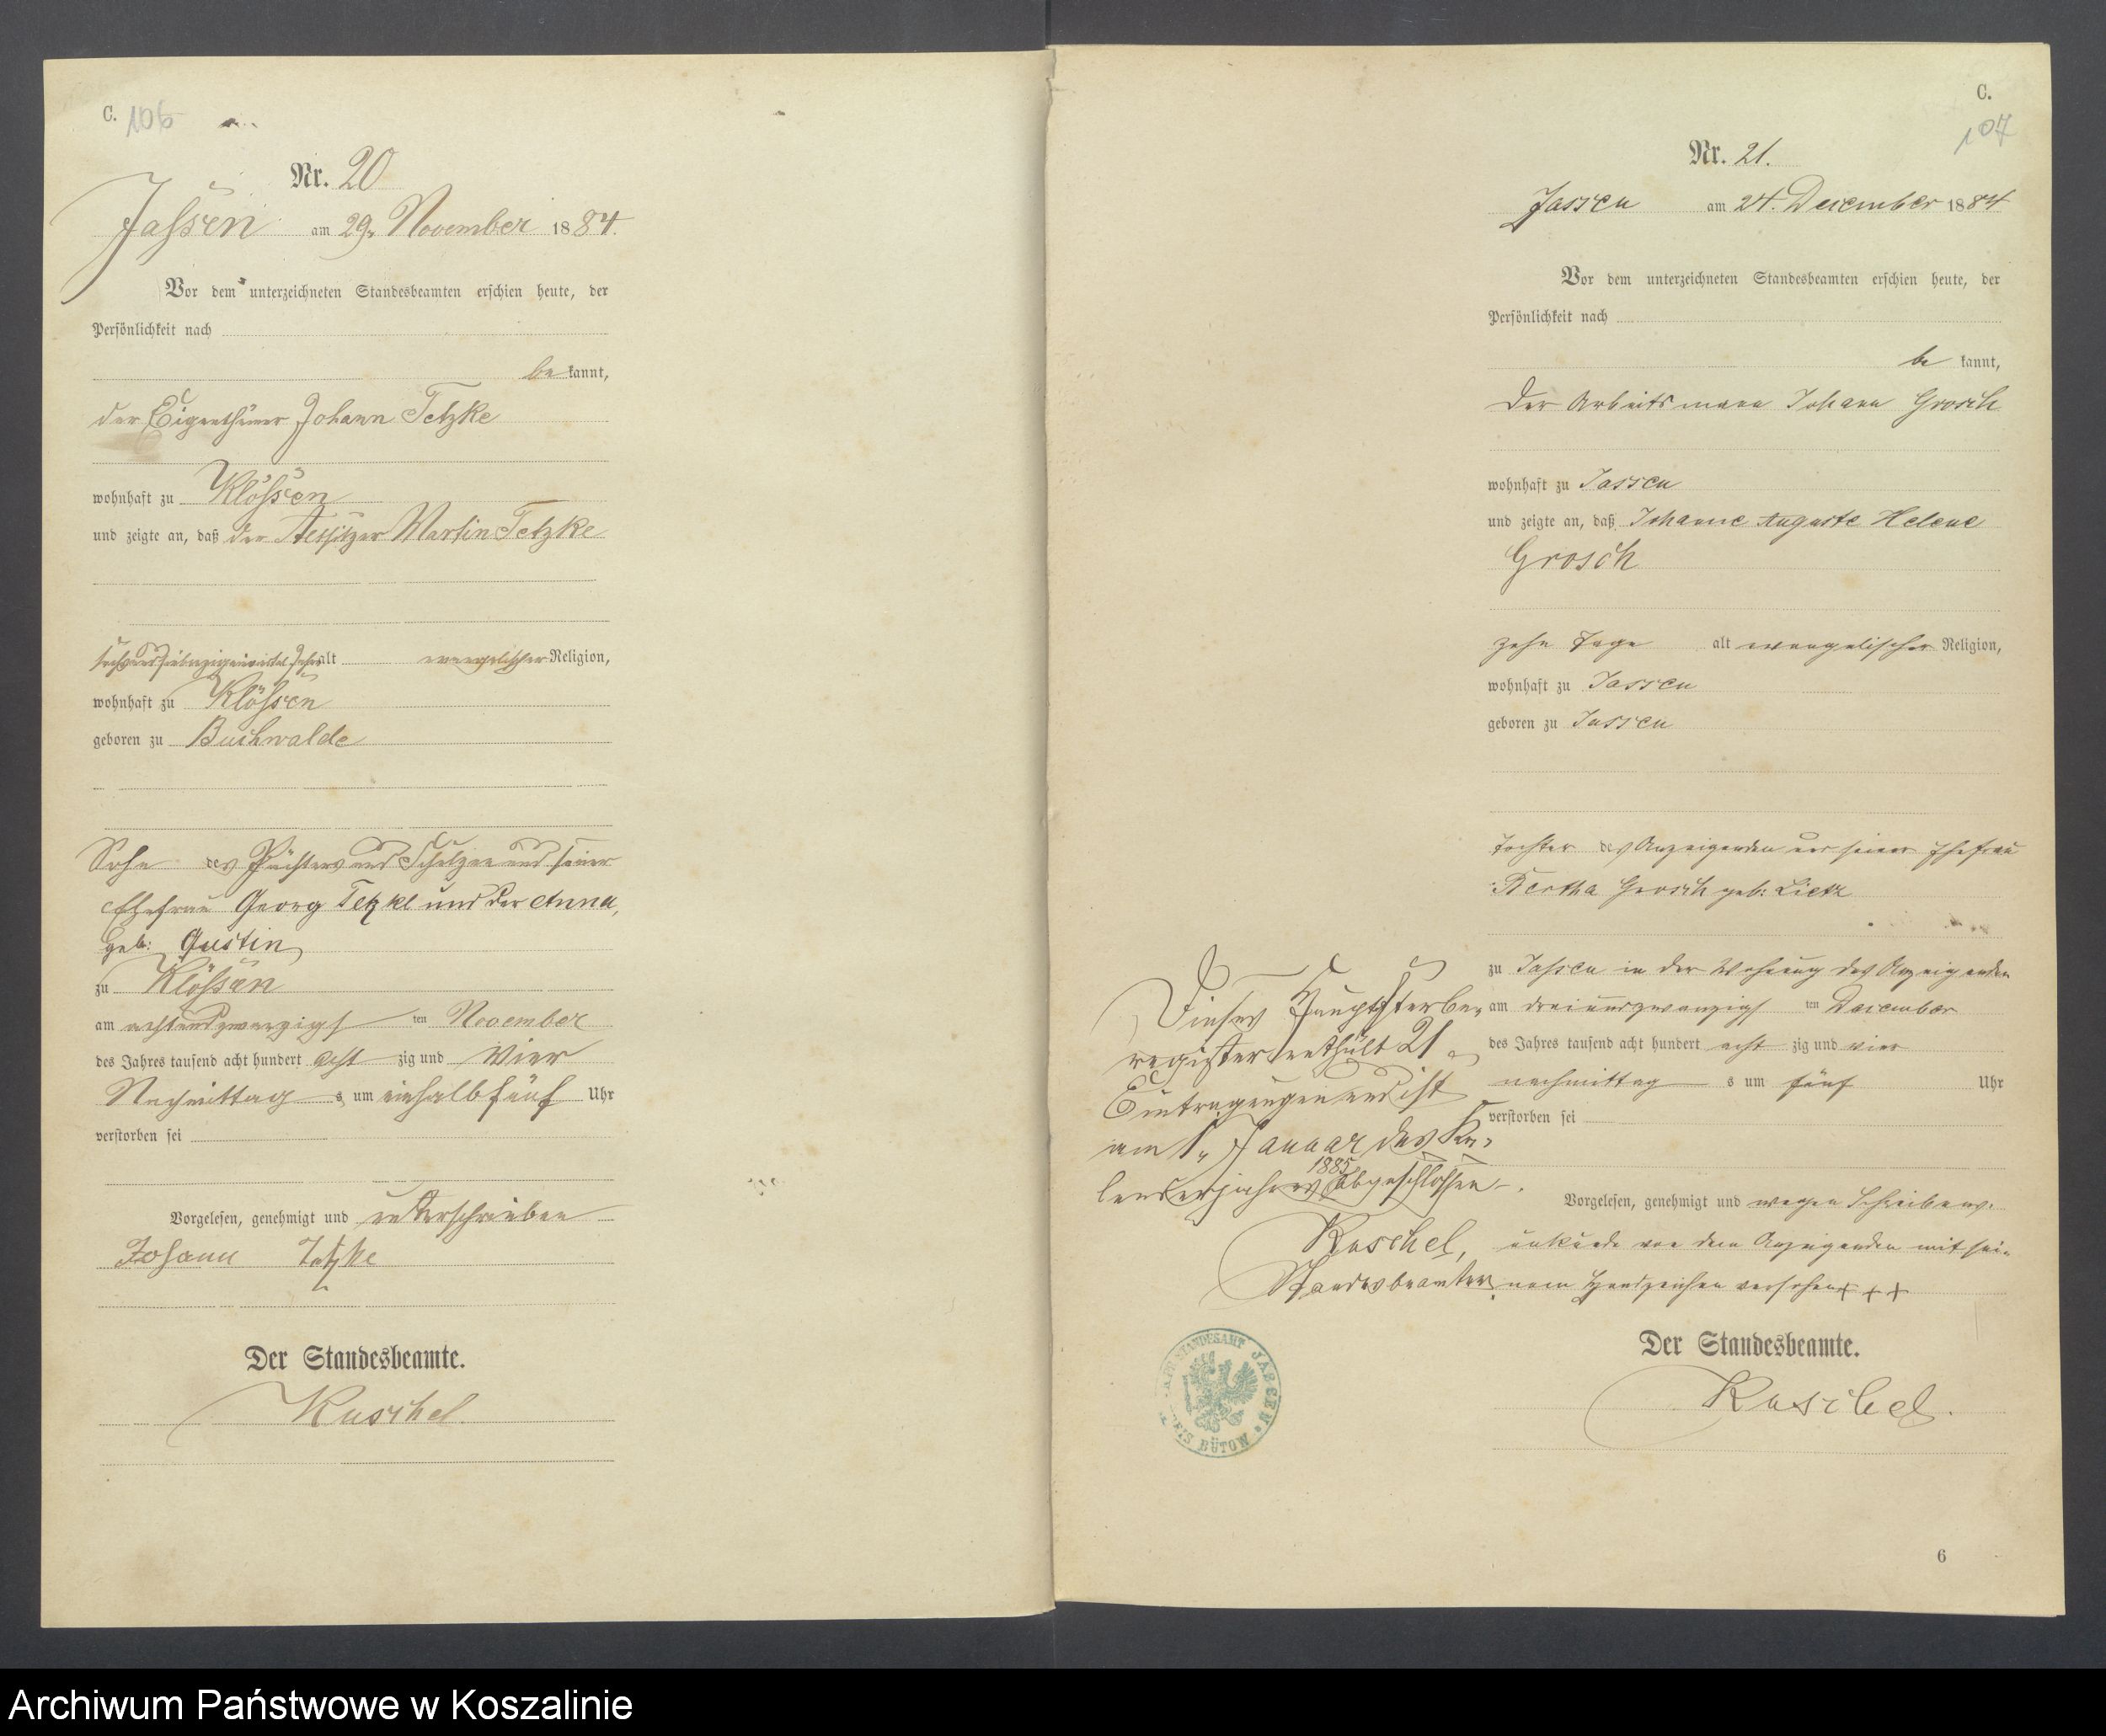 C. 106
Nr. 20
Jassen am 29. November 1884.
Vor dem unterzeichneten Standesbeamten erschien heute, der
Persönlichkeit nach
be kannt,
der Eigenthümer Johann Tetzke
wohnhaft zu Klössen
und zeigte an, daß der Martin Tetzke
alt evangelischer Religion,
wohnhaft zu Klössen
geboren zu Buchwalde
Sohn des Pächters und Schulzen und seiner
Ehefrau Georg Tetzke und der Anna,
geb: Gustin
zu Klössen
am achtundzwanzigsten November
des Jahres tausend acht hundert acht zig und vier
Nachmittag s um einhalb fünf Uhr
verstorben sei
Vorgelesen, genehmigt und unterschrieben
Johann Tetzke
Der Standesbeamte.
Kuschel.
C.
107
Nr. 21.
Jassen am 24. December 1884
Vor dem unterzeichneten Standesbeamten erschien heute, der
Persönlichkeit nach
be kannt,
der Arbeitsmann Johann Grosch
wohnhaft zu Jassen
und zeigte an, daß Johanne Auguste Helene
Grosch
zehn Tage alt evangelischer Religion,
wohnhaft zu Jassen
geboren zu Jassen
Tochter des Anzeigenden und seiner Ehefrau
Bertha Grosch geb: Lietz
zu Jassen in der Wohnung des Anzeigenden
am dreiundzwanzigsten December
des Jahres tausend acht hundert acht zig und vier
nachmittag s um fünf Uhr
verstorben sei
Vorgelesen, genehmigt und wegen Schreibens-
unkunde von dem Anzeigenden mit sei-
nem Handzeichen versehen +++
Der Standesbeamte.
Kuschel.
Dieses Hauptsterbe-
register enthält 21
Eintragungen und ist
am 1. Januar des Ka-
lenderjahres 1885 abgeschlossen.
Kuschel,
Standesbeamter
STANDESAMT JASSEN
BÜTOW
6
Archiwum Państwowe w Koszalinie